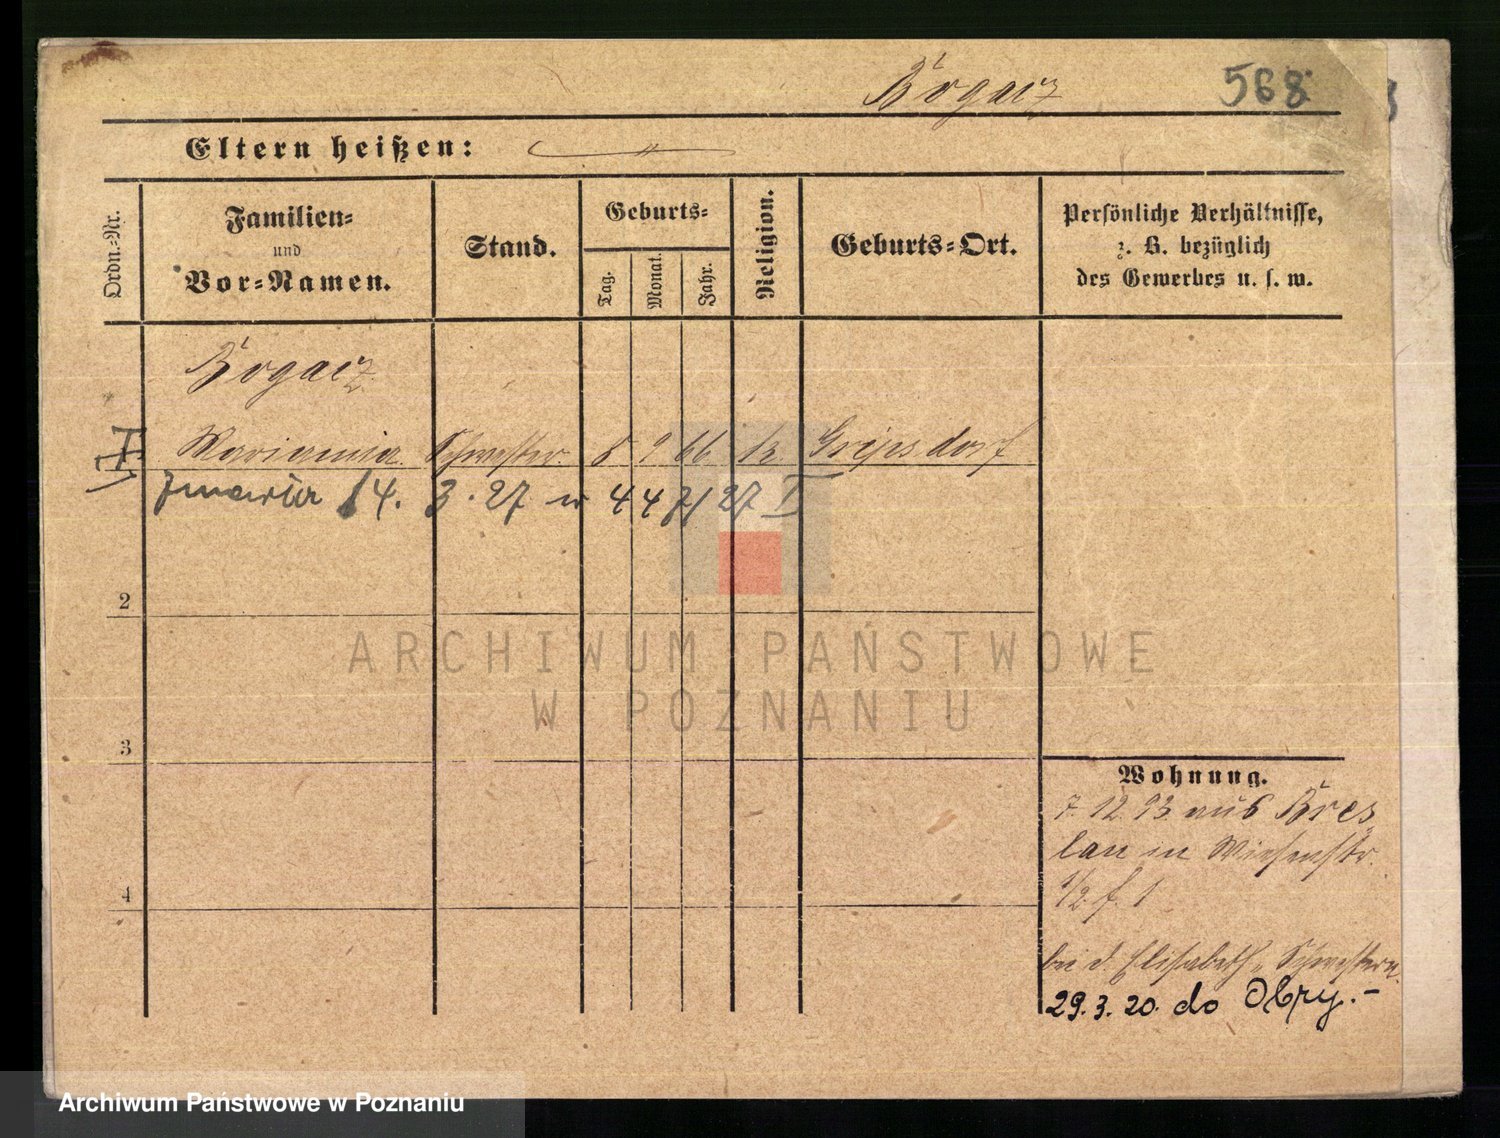 Bogacz 568
Eltern heißen:
Ordn.-Nr.
Familien-
und
Vor-Namen.
Stand.
Geburts-
Tag.
Monat.
Jahr.
Religion.
Geburts-Ort.
Persönliche Verhältnisse,
z. B. bezüglich
des Gewerbes u. s. w.
Bogacz
Marianna Schwester 8 9 66 k.
zmarła 14. 3. 27 w 447/27 I
2
3
4
Wohnung.
7. 12. 93 aus Bres
lau in Wiesenstr.
1/2 f. 1
bei d. Elisabeth-Schwestern
29. 3. 20. do Obry.-
ARCHIWUM PAŃSTWOWE
W POZNANIU
Archiwum Państwowe w Poznaniu